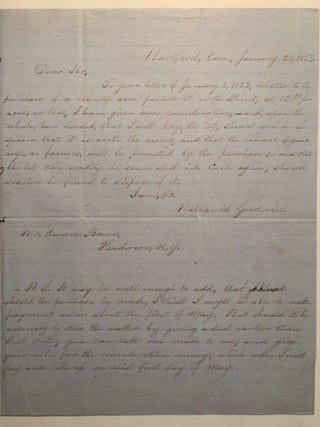 Hartford, Conn, January 20, 1853.
Dear Sir,
To your letter of January 1, 1853, relative to the
purchase of a seventy acre pasture lot in the at 12 pr
acre, or less, I have given more consideration, and, upon the
whole, have decided, that I will buy the lot, should you be of
opinion, that it is worth the money, and that the interest of your
boys, as farmers, will be promoted by the purchase, and that
the lot can readily be converted into Cash again, should
occasion be found to dispose of it.
I am, &c.
Nathaniel Goodwin.
Mr. Amasa Brown,
Henderson, N.Y.
P.S. It may be well enough to add, that
should the purchase be made, I think I might be able to make
payment on or about the first of May. But should it be
necessary to close the matter by giving a deed earlier than
that date, you can take one made to me, and give
your note for the consideration money, which note I will
pay and take up on said first day of May.